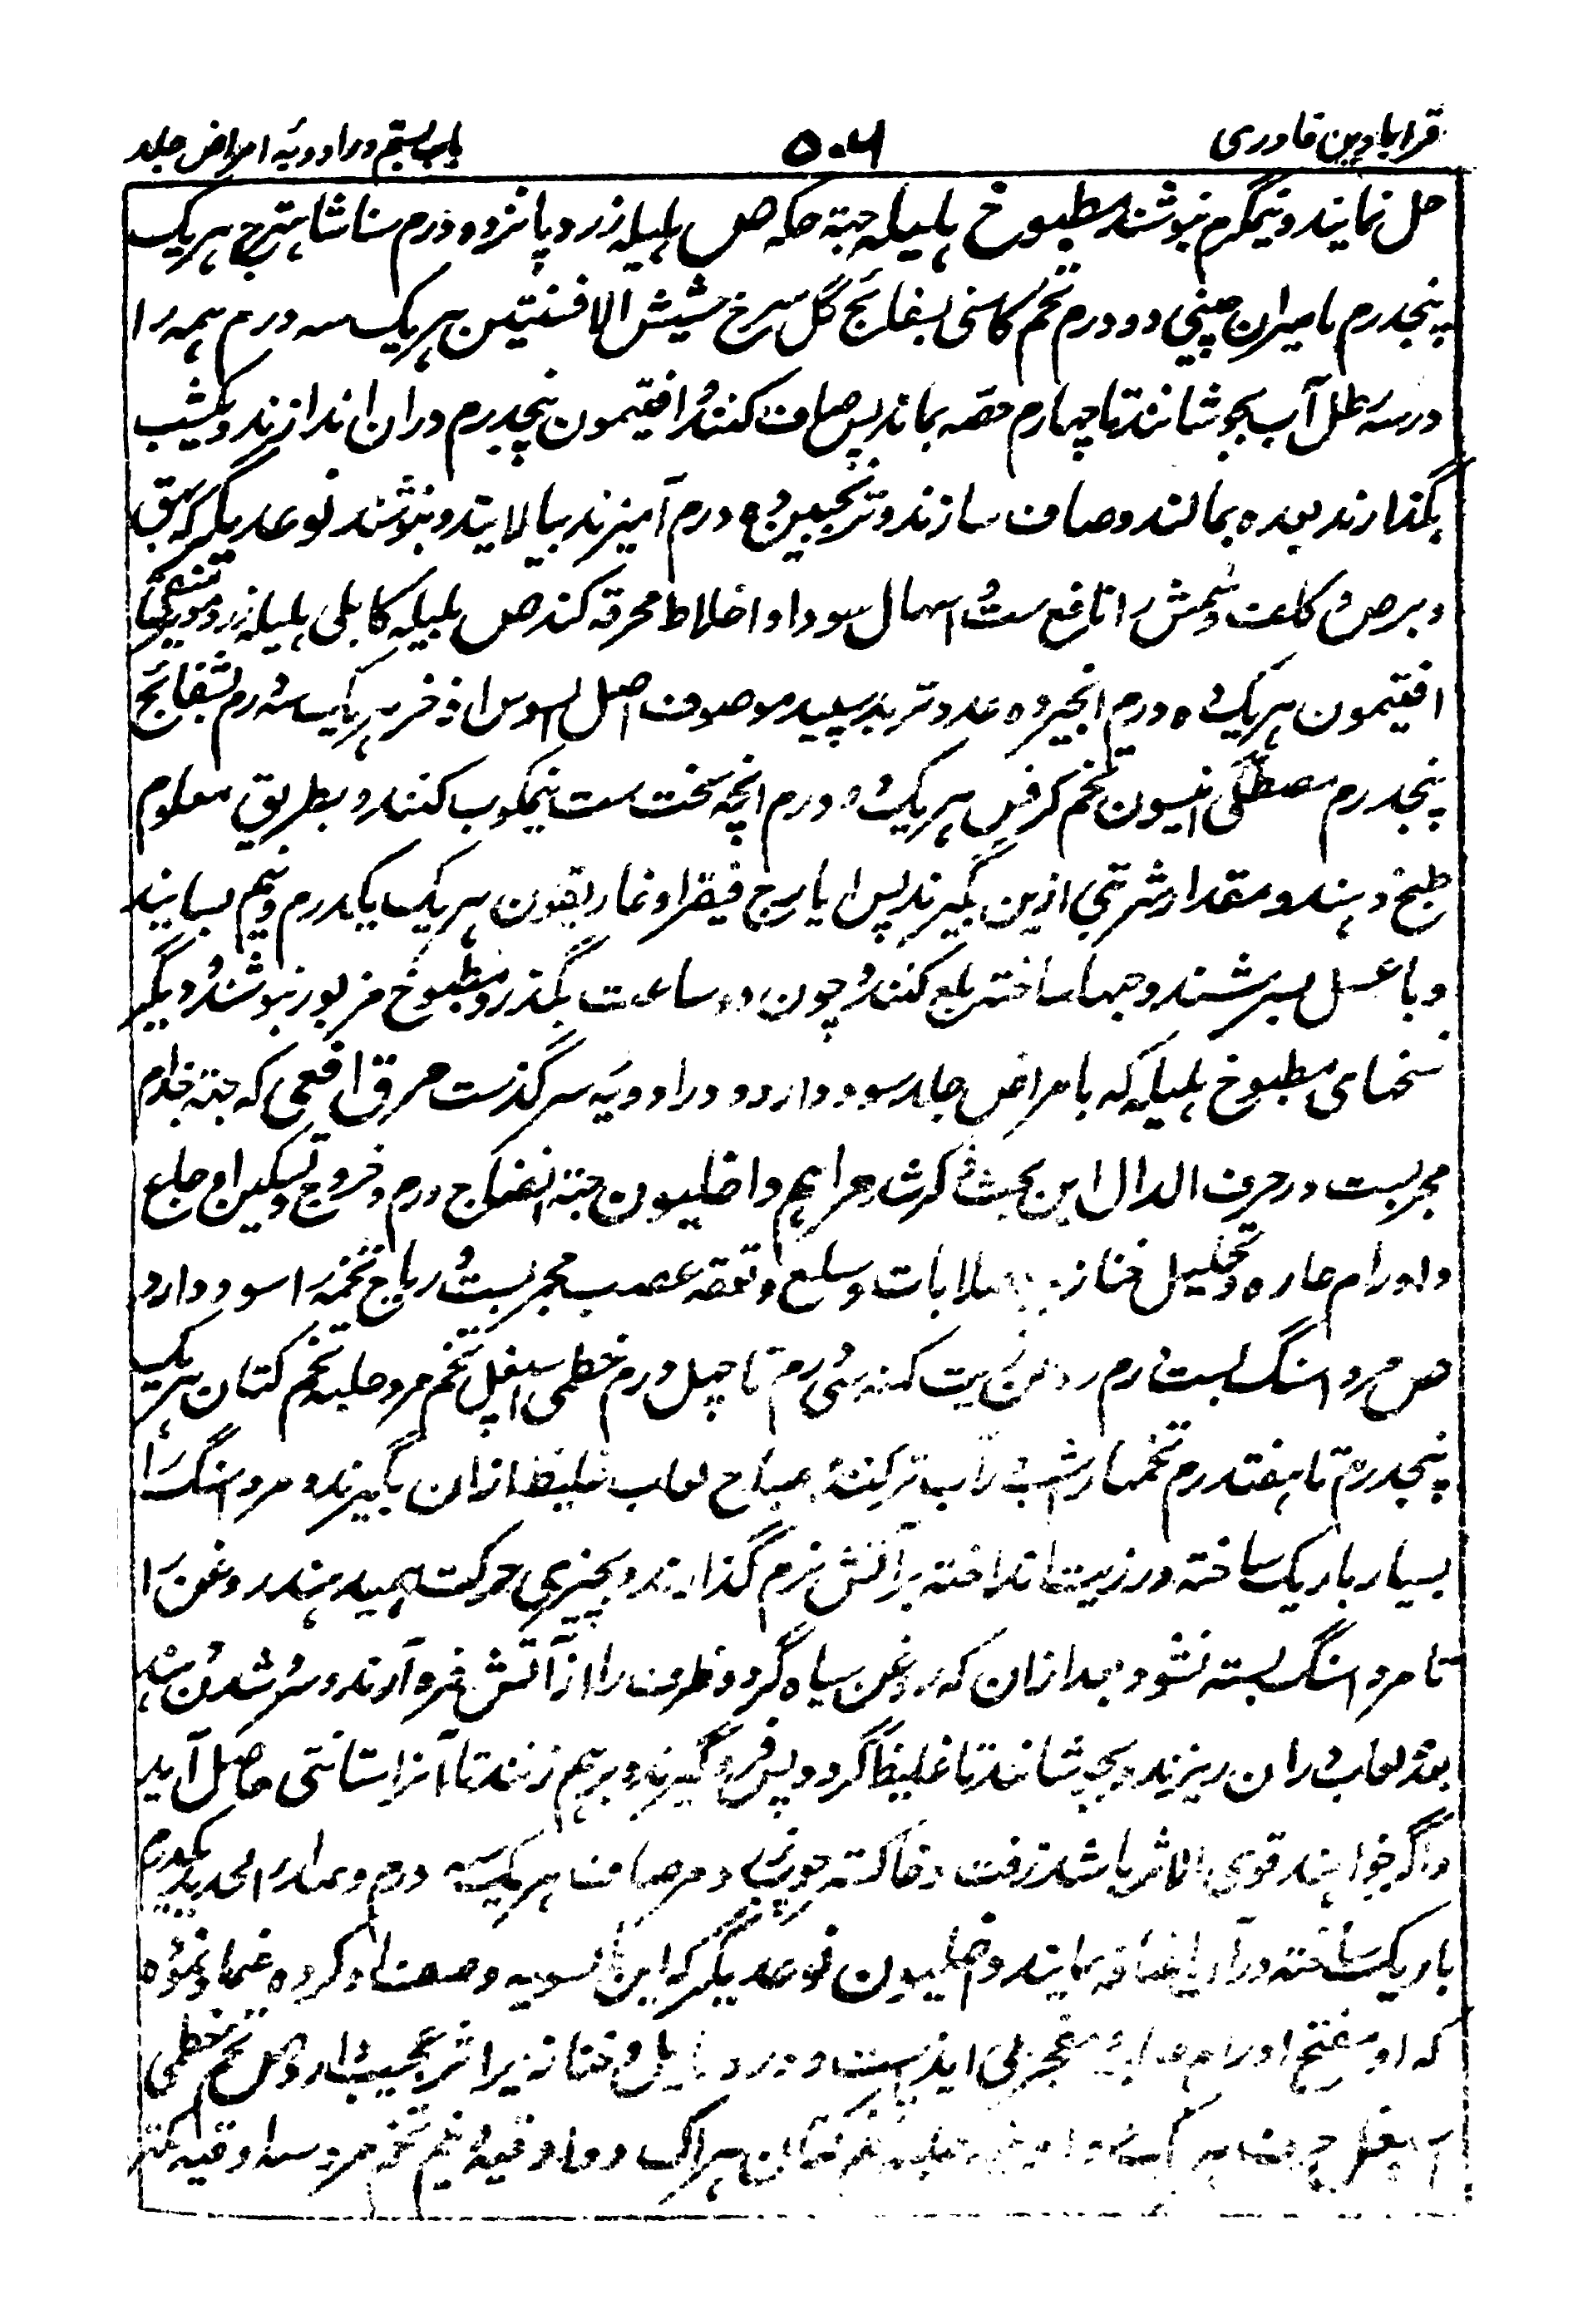 قرابادین قادری
۵۰۶
باب بستم در ادویهٔ امراض جلد
حل نمایند و نیمگرم بنوشند مطبوخ ہلیلہ جہتہ حکہ ص ہلیلہ زرد پانزدہ درم سنا شاہترج ہر یک
پنجدرم مامیران چینی دو درم تخم کاسنی بسفائج گل سرخ حشیش الافسنتین ہر یک سہ درم ہمہ را
در سہ رطل آب بجوشانند تا چہارم حصہ بماند پس صاف کنند و افتیمون پنجدرم دران اندازند و یکشب
بگذارند بعدہ بمالند و صاف سازند و ترنجبین دہ درم آمیزند بپالایند و بنوشند نوعدیگر کہ بہق
و برص و کلف و نمش را نافع ست و اسہال سودا و اخلاط محرقہ کند ص ہلیلہ کابلی ہلیلہ زرد مویز منقی
افتیمون ہر یک دہ درم انجیر دہ عدد تربد سپید موصوف اصل السوس اذخر ہر یک سہ درم بسفائج
پنجدرم مصطگی انیسون تخم کرفس ہر یک دو درم انچہ سخت ست نیمکوب کنند و بطریق معلوم
طبخ دہند و مقدار شربتی ازین بگیرند پس ایارج فیقرا و غاریقون ہر یک یکدرم و نیم بسایند
و با عسل بسرشند و حبہا ساختہ بلع کنند و چون دو ساعت بگذرد مطبوخ مزبور بنوشند و دیگر
نسخہای مطبوخ ہلیلہ کہ بامراض جلد سود دارد در ادویہ سر گذشت مرق افعی کہ جہتہ جذام
مجربست در حرف الدال این بحث ذکر شد مراہم داخلیون جہتہ انضاج ورم و خروج و تسکین اوجاع
و اورام حارہ و تحلیل خنازیر و صلابات و سلع و تعقد عصب مجربست و ریاح تخمہ را سود دارد
ص مرداسنگ بست درم روغن زیت کہنہ سی درم تا چہل درم خطمی اسپغل تخم مرو حلبہ تخم کتان ہر یک
پنجدرم تا ہفتدرم تخمہا را شب در آب تر کنند و صباح لعاب غلیظ ازان بگیرند و مرداسنگ را
بسیار باریک ساختہ در زیت انداختہ بر آتش نرم گذارند و بچیزی حرکت میدہند روغن را
تا مرداسنگ بستہ نشود بعد ازان کہ روغن سیاہ گردد ظرف را از آتش فرو آرند و سرد شدن بدہند
بعدہ لعاب دران ریزند و بجوشانند تا غلیظ گردد پس فرو گیرند و برہم زنند تا آنرا ستانتی حاصل آید
و اگر خواہند قوی الاثر باشد زفت و خاکستر چوب و مر صاف ہر یک سہ درم و مداد الحدید یکدرم
باریک ساختہ در آن اضافہ نمایند داخلیون نوعدیگر کہ ابن ماسویہ وصف او کردہ و اعتماد نمودہ
کہ او مفتح اورام صلبہ و معجزنی ایذیست و در دبابیل و خنازیر اثر عجیب دارد ص تخم خطمی
اسپغل ہر یک حلبہ تخم کتان ہر یک دو اوقیہ و نیم تخم مرو سہ اوقیہ